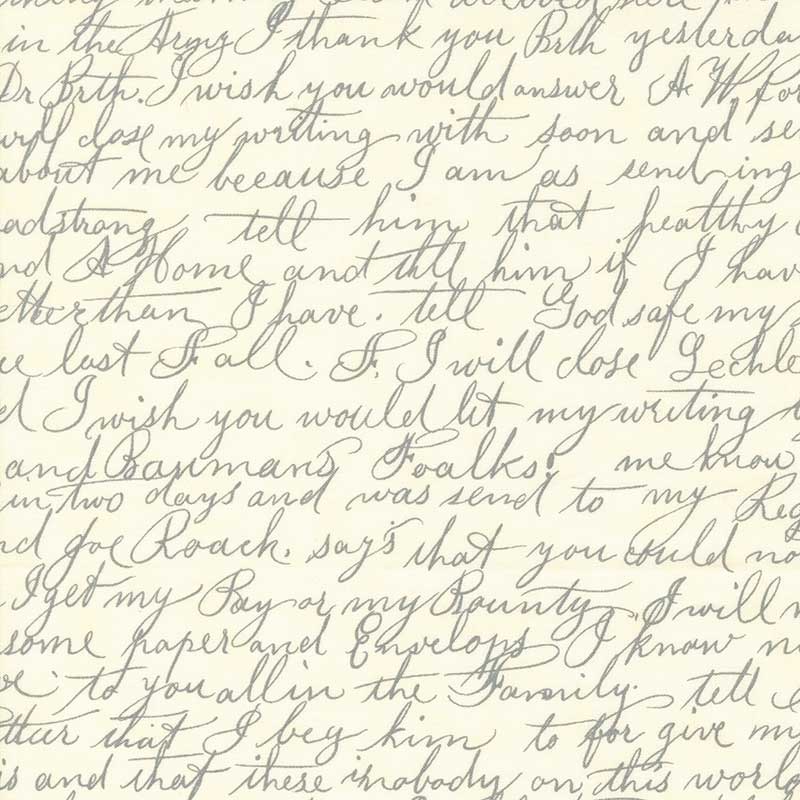 in the Army I thank you Brth yesterda
Dr Brth. I wish you would answer A W. for
will close my writing with soon and se
about me because I am as sending
adstrong tell him that healthy
nd A Home and till him if I hav
etter than I have. tell God safe my
ve last Fall. F. I will close Lechle
d I wish you would let my writing
and Baumans Foalks. me know
in two days and was send to my Reg
nd Joe Roack. say's that you could no
I get my Pay or my Bounty, I will
some paper and Envelops I know n
to you all in the Family. tell
that I beg him to for give my
is and that there is nobody on this world